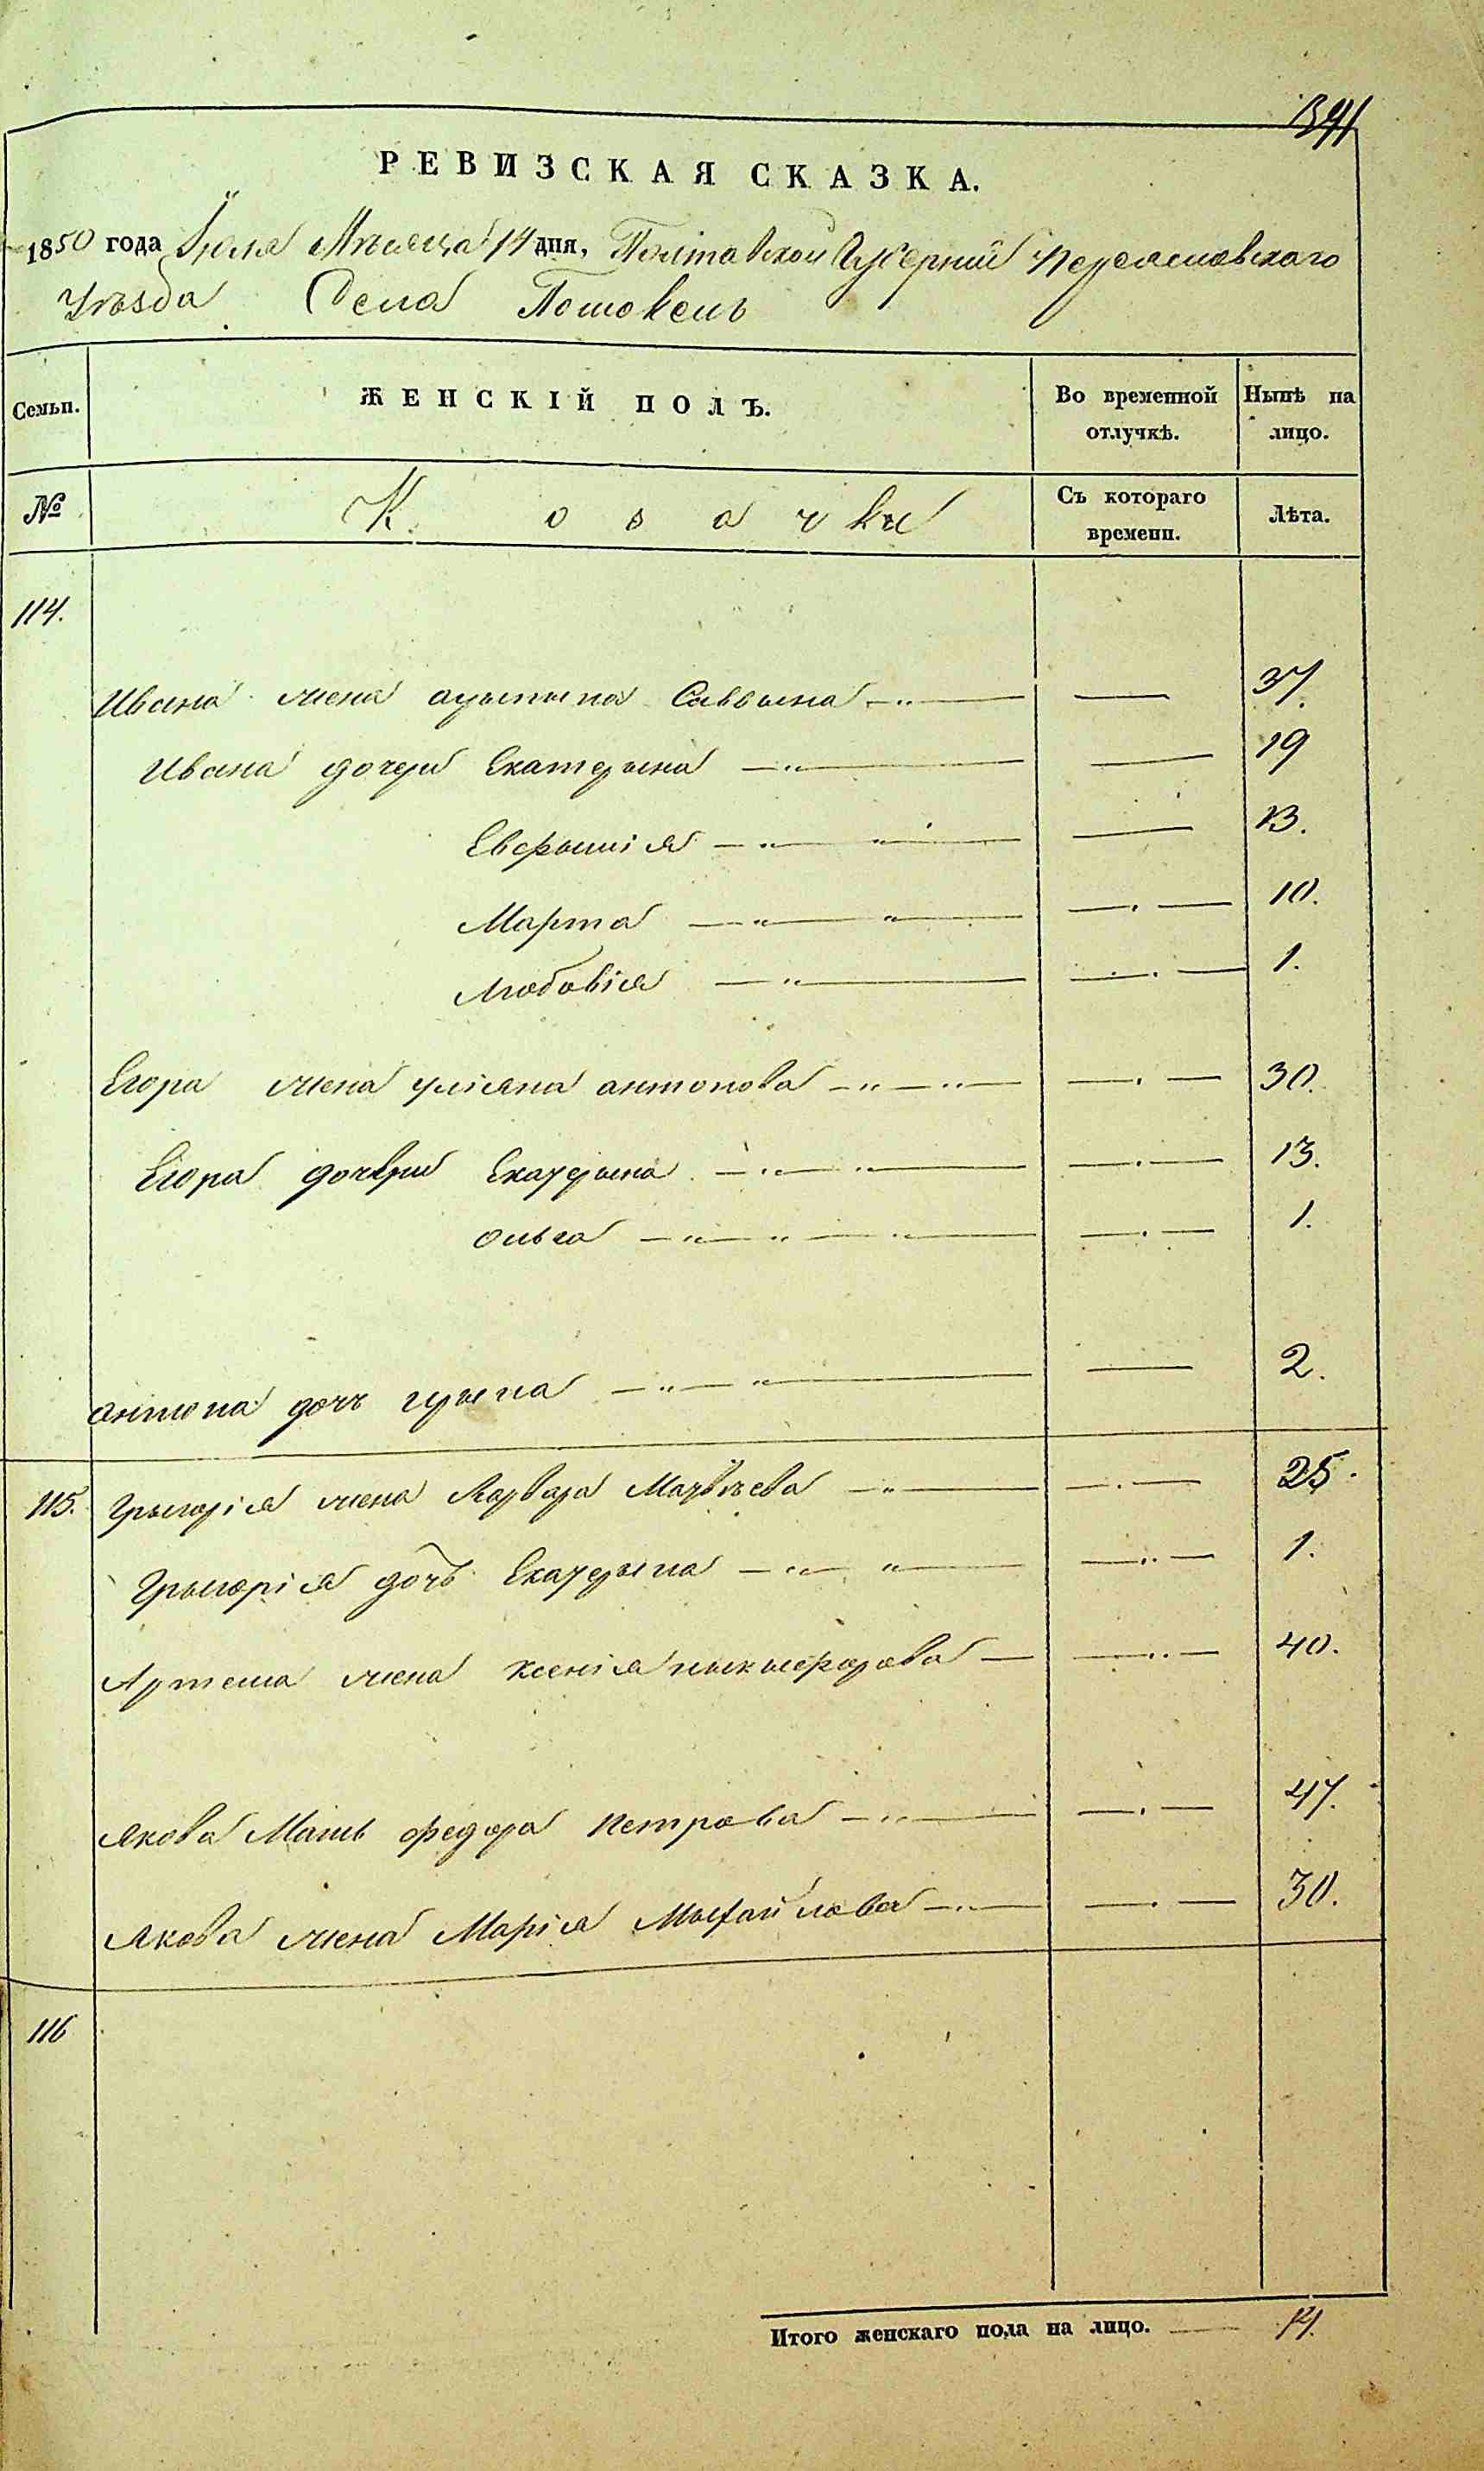 1341
РЕВИЗСКАЯ СКАЗКА.
1850 года Іюля Мѣсяца 14 дня, Полтавской Губерніи Переясловскаго
Уѣзда Села Пошовецъ
Семьи. ЖЕНСКІЙ ПОЛЪ. Во временной отлучкѣ. Нынѣ на лицо.
№ Козачки Съ котораго времени. Лѣта.
114.
Ивана жена аустына Саввына 37.
Ивана дочери Екатерына 19
Евфыміа 13.
Марта 10.
Любовія 1.
Егора жена уліяна антонова 30.
Егора дочери Екатерына 13.
Ольга 1.
антона дочъ Ирына 2.
115. Грыгорія жена Варвара Матвѣева 25.
Грыгорія дочъ Екатерына 1.
Артема жена Ксенія ныкыфорова 40.
Якова Мать федора Петрова 47.
Якова жена Марія Мыхайлова 30.
116
Итого женскаго пола на лицо. 14.